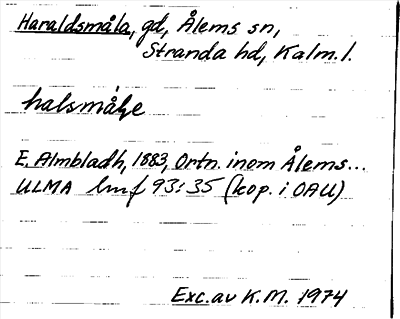 Haraldsmåla, gd, Ålems sn,
Stranda hd, Kalm. l.
halsmåḷe
E. Almbladh, 1883, Ortn. inom Ålems...
ULMA lmf 93:35 (kop. i OAU)
Exc. av K.M. 1974